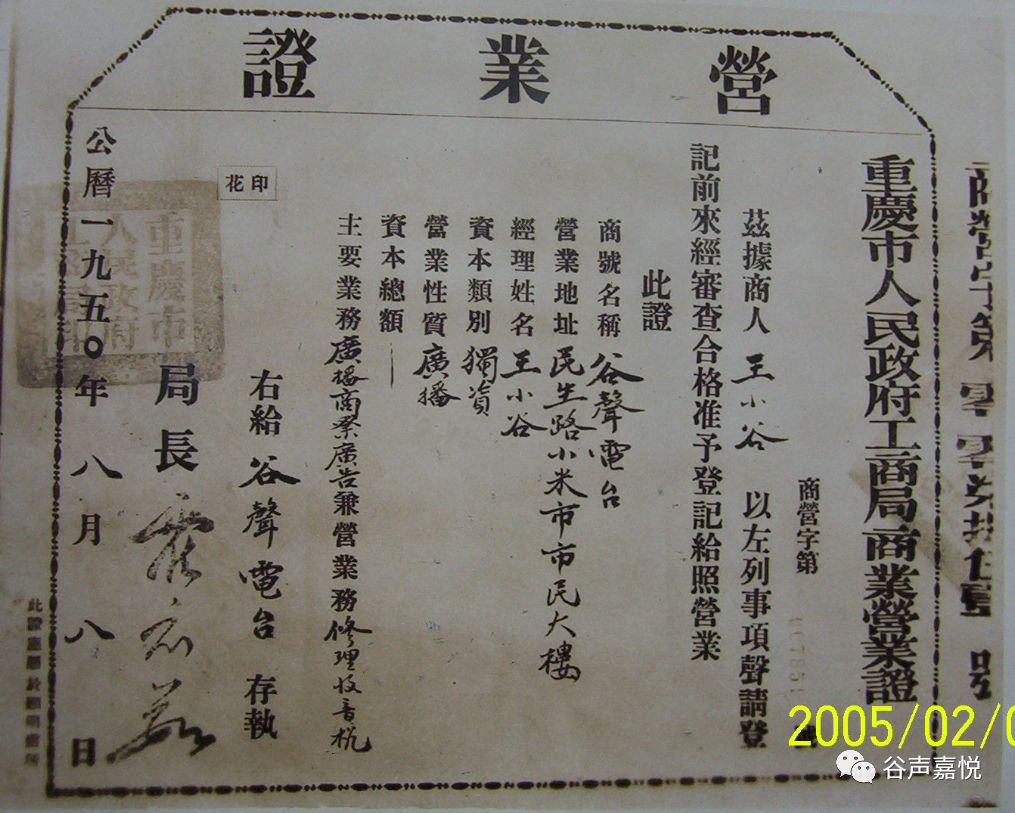 營業證
重慶市人民政府工商局商業營業證
商營字第
茲據商人王小谷以左列事項聲請登
記前來經審查合格准予登記給照營業
此證
商號名稱谷聲電台
營業地址民生路小米市市民大樓
經理姓名王小谷
資本類別獨資
營業性質廣播
資本總額
主要業務廣播商業廣告兼營業務修理收音机
右給谷聲電台存執
印花
局長
公曆一九五〇年八月八日
重慶市
人民政府
工商局印
2005/02/0
谷声嘉悦